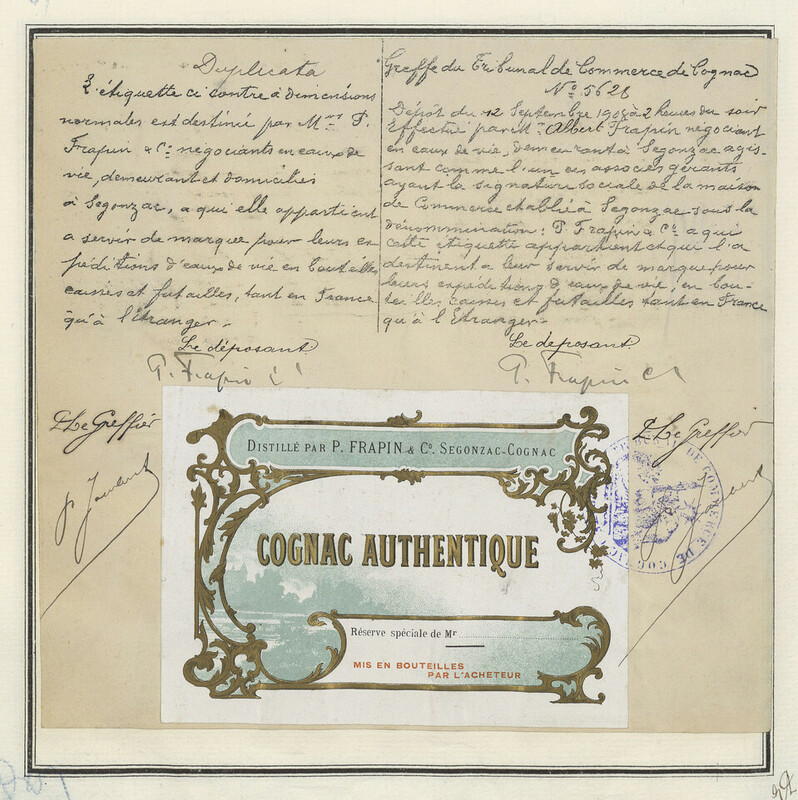 Duplicata
L'étiquette ci contre à dimensions
normales est destiné par Mrs P.
Frapin & Co négociants en eaux de
vie, demeurant et domiciliés
à Segonzac, a qui elle appartient
a servir de marque pour leurs ex
péditions d'eaux de vie en bouteilles
caisses et futailles, tant en France
qu'à l'Etranger.
Le déposant
P. Frapin & Co
P Le Greffier
Greffe du Tribunal de Commerce de Cognac
No 5628
Dépôt du 12 Septembre 1908 à 2 heures du soir
Effectué par Mr Albert Frapin négociant
en eaux de vie, demeurant à Segonzac agis-
sant comme l'un des associés gérants
ayant la signature sociale de la maison
de Commerce etablie à Segonzac sous la
dénommination: P. Frapin & Co a qui
cette étiquette appartient et qui l'a
destinent a leur servir de marque pour
leurs expéditions d'eaux de vie, en bou-
teilles caisses et futailles tant en France
qu'à l'Etranger.
Le déposant
P. Frapin & Co
P Le Greffier
TRIBUNAL DE COMMERCE DE COGNAC
DISTILLÉ PAR P. FRAPIN & Co. SEGONZAC-COGNAC
COGNAC AUTHENTIQUE
Réserve spéciale de Mr
MIS EN BOUTEILLES
PAR L'ACHETEUR